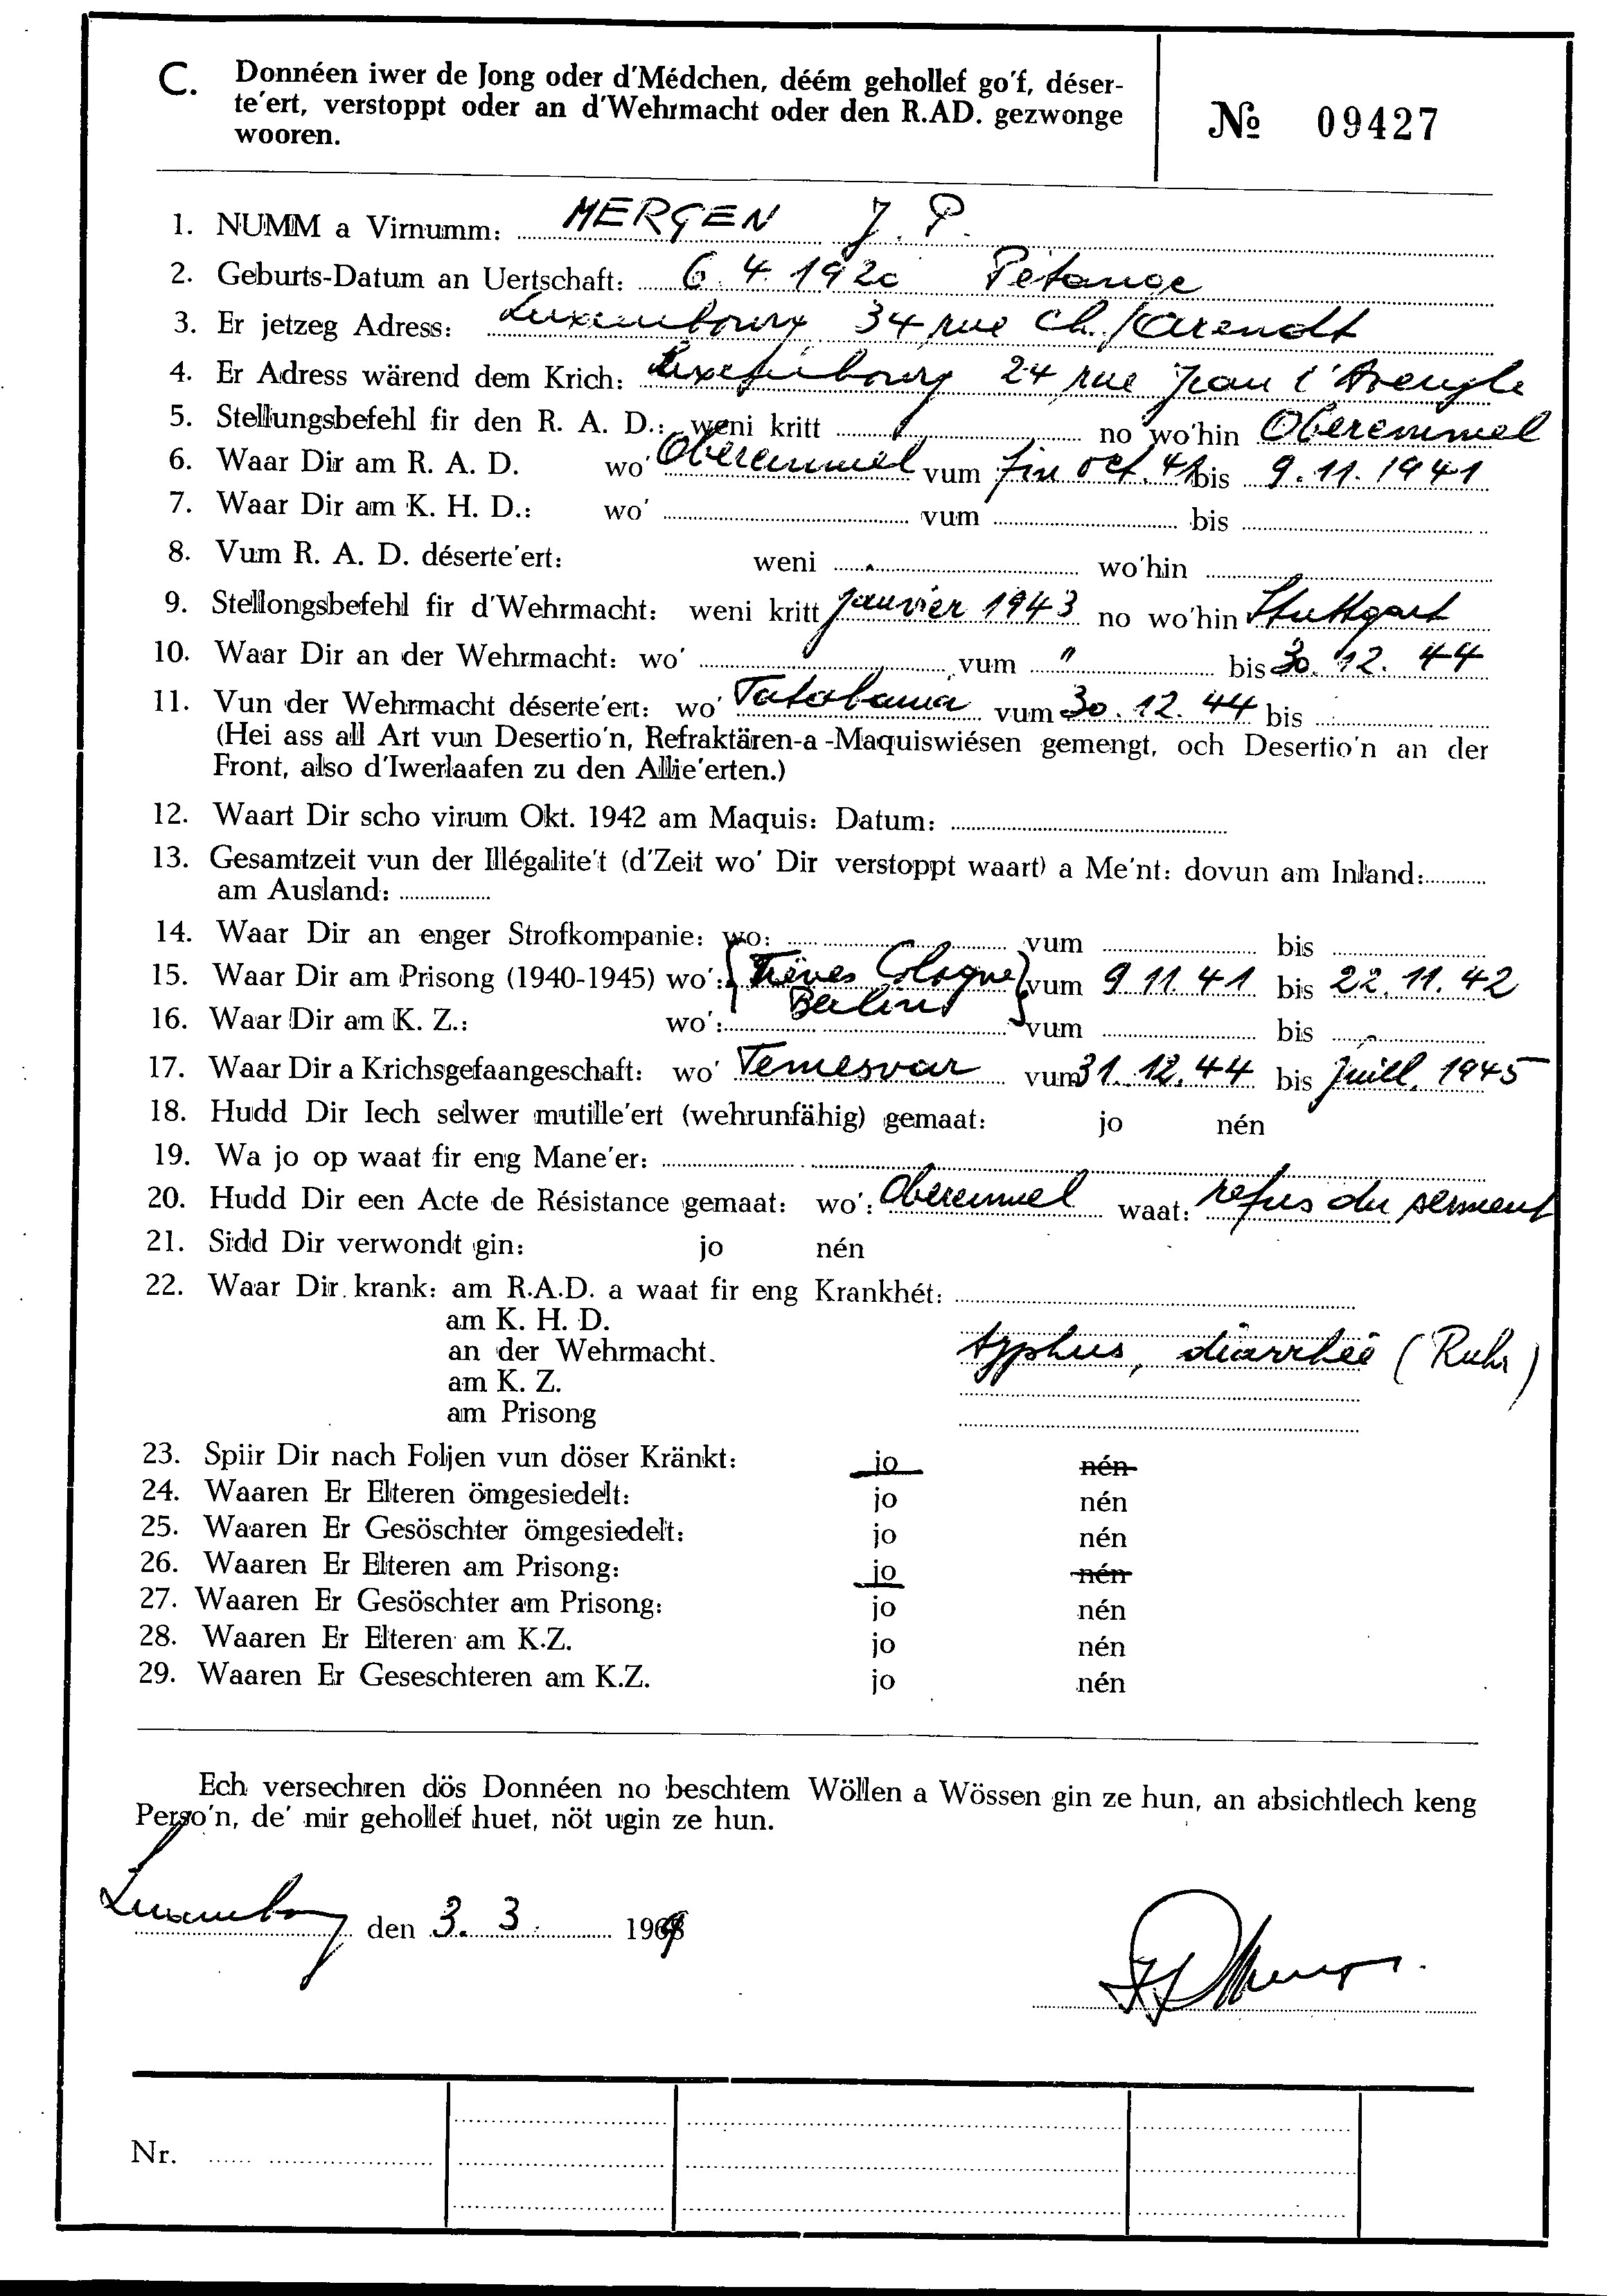 C. Donnéen iwer de Jong oder d'Médchen, déém gehollef go'f, déser-
te'ert, verstoppt oder an d'Wehrmacht oder den R.AD. gezwonge
wooren.
№ 09427
1. NUMM a Virnumm: MERGEN J. P.
2. Geburts-Datum an Uertschaft: 6. 4. 1920 Pétange
3. Er jetzeg Adress: Luxembourg 34 rue Ch. Arendt
4. Er Adress wärend dem Krich: Luxembourg 24 rue Jean l'Aveugle
5. Stellungsbefehl fir den R. A. D.: weni kritt no wo'hin Oberemmel
6. Waar Dir am R. A. D. wo' Oberemmel vum fin oct. 41 bis 9. 11. 1941
7. Waar Dir am K. H. D.: wo' vum bis
8. Vum R. A. D. déserte'ert: weni wo'hin
9. Stellongsbefehl fir d'Wehrmacht: weni kritt janvier 1943 no wo'hin Stuttgart
10. Waar Dir an der Wehrmacht: wo' vum " bis 30. 12. 44
11. Vun der Wehrmacht déserte'ert: wo' vum 30. 12. 44 bis
(Hei ass all Art vun Desertio'n, Refraktären-a-Maquiswiésen gemengt, och Desertio'n an der
Front, also d'Iwerlaafen zu den Allie'erten.)
12. Waart Dir scho virum Okt. 1942 am Maquis: Datum:
13. Gesamtzeit vun der Illégalite't (d'Zeit wo' Dir verstoppt waart) a Me'nt: dovun am Inland:
am Ausland:
14. Waar Dir an enger Strofkompanie: wo: vum bis
15. Waar Dir am Prisong (1940-1945) wo': Trèves Cologne vum 9 11. 41 bis 22. 11. 42
Berlin
16. Waar Dir am K. Z.: wo': vum bis
17. Waar Dir a Krichsgefaangeschaft: wo' Temesvar vum 31. 12. 44 bis Juill. 1945
18. Hudd Dir Iech selwer mutille'ert (wehrunfähig) gemaat: jo nén
19. Wa jo op waat fir eng Mane'er:
20. Hudd Dir een Acte de Résistance gemaat: wo': Oberemmel waat: refus du serment
21. Sidd Dir verwondt gin: jo nén
22. Waar Dir krank: am R.A.D. a waat fir eng Krankhét:
am K. H. D.
an der Wehrmacht. typhus, diarrhée (Ruhr)
am K. Z.
am Prisong
23. Spiir Dir nach Foljen vun döser Kränkt: jo nén
24. Waaren Er Elteren ömgesiedelt: jo nén
25. Waaren Er Gesöschter ömgesiedelt: jo nén
26. Waaren Er Elteren am Prisong: jo nén
27. Waaren Er Gesöschter am Prisong: jo nén
28. Waaren Er Elteren am K.Z. jo nén
29. Waaren Er Geseschteren am K.Z. jo nén
Ech versechren dös Donnéen no beschtem Wöllen a Wössen gin ze hun, an absichtlech keng
Perso'n, de' mir gehollef huet, nöt ugin ze hun.
Luxembourg den 3. 3. 1969
Nr.